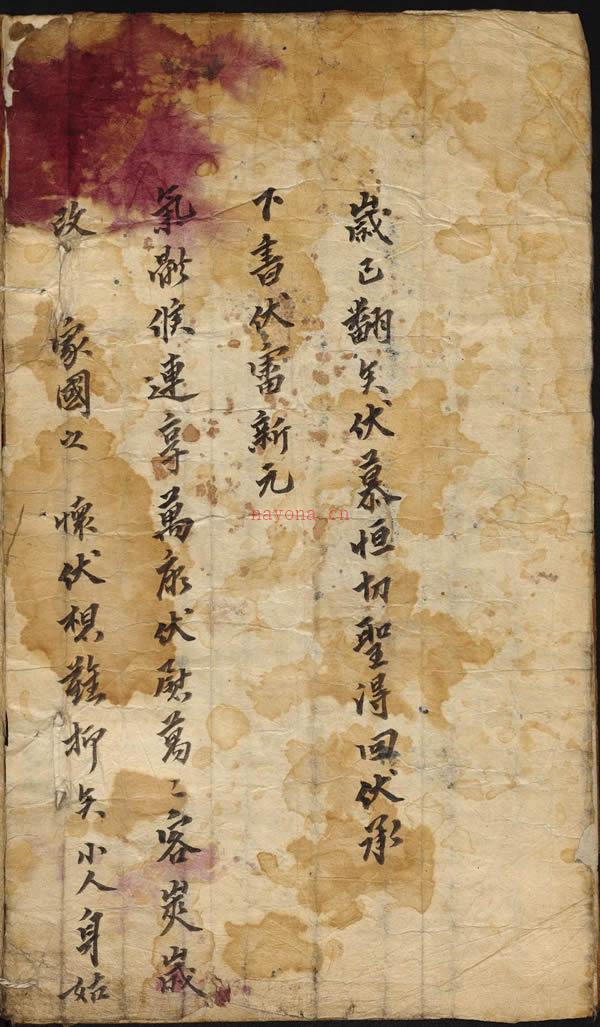 歲已翻矣伏慕恒切聖得回伏承
下書伏審新元
氣候連享萬伏慰萬〻客歲
改 家國之 懷伏想難抑矣小人身姑
nayona.cn